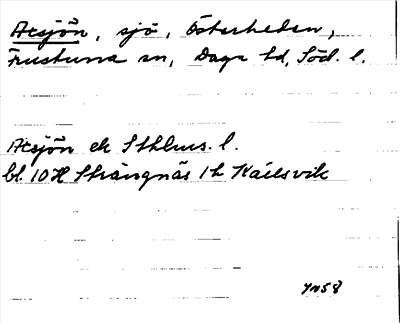 Acsjön, sjö, Österheden,
Frustuna sn, Daga hd, Söd. l.
Acsjön ek Sthlms. l.
bl. 10 H Strängnäs 1 h Kailsvik
YN58